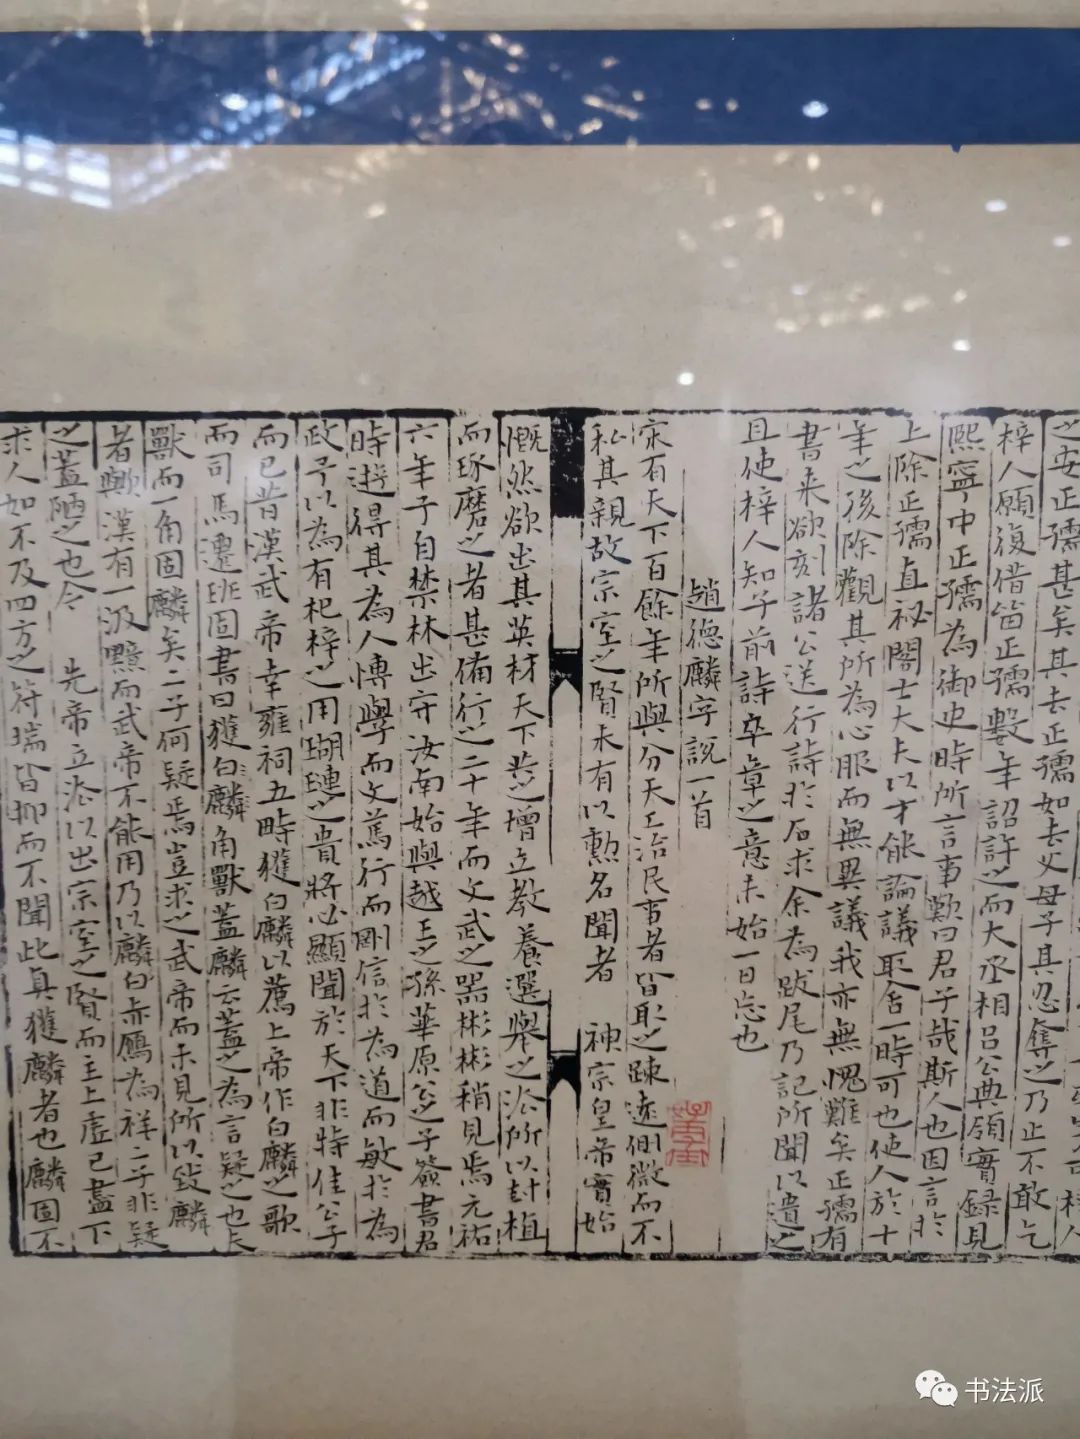 之安正孺甚矣其去正孺如去父母子其忍奪之乃止不敢乞
梓人願復借留正孺數年詔許之而大丞相吕公典領實録見
熙寧中正孺為御史時所言事歎曰君子哉斯人也因言於
上除正孺直祕閣士大夫以才能論議取舍一時可也使人於十
年之後除觀其所為心服而無異議我亦無愧難矣正孺有
書来欲刻諸公送行詩於石求余為跋尾乃記所聞以遺之
且使梓人知予前詩卒章之意未始一日忘也
趙德麟字說一首
宋有天下百餘年所與分天工治民事者皆取之踈逺側微而不
私其親故宗室之賢未有以勲名聞者 神宗皇帝實始
慨然欲出其英材天下共之增立教養選舉之法所以封植
而琢磨之者甚備行之二十年而文武之器彬彬稍見焉元祐
六年予自禁林出守汝南始與越王之孫華原公之子簽書君
時遊得其為人博學而文篤行而剛信於為道而敏於為
政予以為有杞梓之用瑚璉之貴將必顯聞於天下非特佳公子
而已昔漢武帝幸雍祠五畤獲白麟以薦上帝作白麟之歌
而司馬遷班固書曰獲白麟角獸蓋麟云蓋之為言疑之也夫
獸而一角固麟矣二子何疑焉豈求之武帝而未見所以致麟
者歟漢有一汲黯而武帝不能用乃以麟白赤鴈為祥二子非疑
之蓋陋之也今 先帝立法以出宗室之賢而主上虚己盡下
求人如不及四方之符瑞皆抑而不聞此真獲麟者也麟固不
書法派